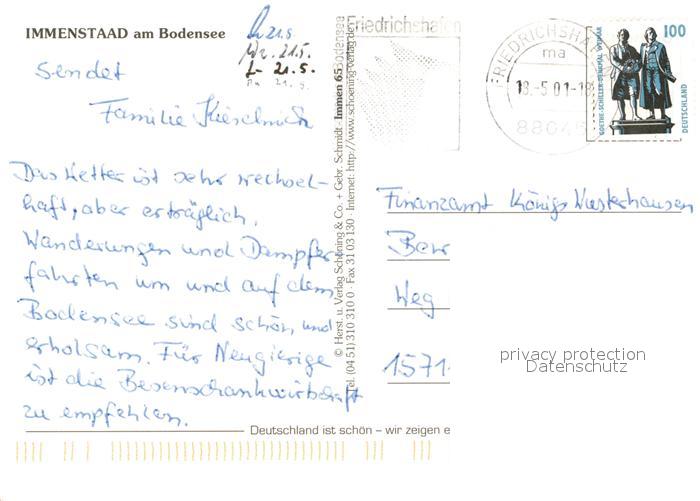 IMMENSTAAD am Bodensee
21.5.
21.5.
21.5.
21.5.
sendet
Familie
Das Wetter ist sehr wechsel-
haft, aber erträglich.
Wanderungen und Dampfer-
fahrten um und auf dem
Bodensee sind schön und
erholsam. Für Neugierige
ist die Besenschankwirtschaft
zu empfehlen.
Deutschland ist schön – wir zeigen e
© Herst. u. Verlag Schöning & Co. + Gebr. Schmidt · Immen 65
Tel. (04 51) 310 310 0 · Fax 31 03 130 · Internet: http://www.schoening-verlag.de
Bodensee
Friedrichshafen
FRIEDRICHSHA
ma
18.-5.01-18
88045
100
GOETHE-SCHILLER-DENKMAL WEIMAR
DEUTSCHLAND
Finanzamt Königs Wusterhausen
Weg
1571
privacy protection
Datenschutz